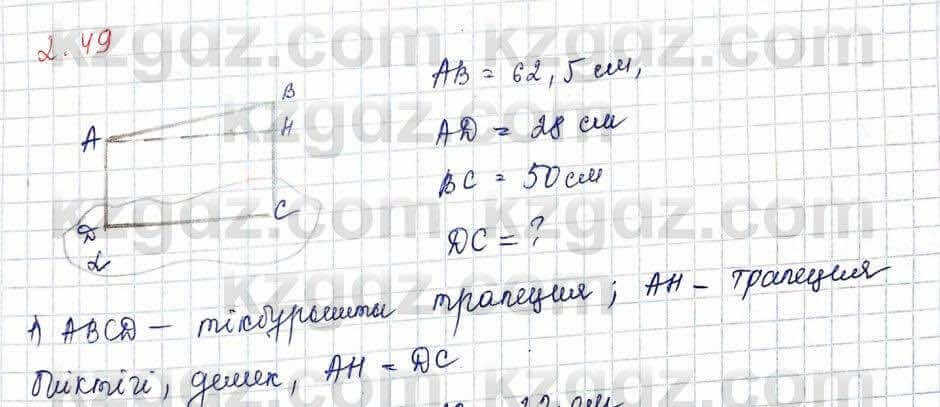 2.49
AB = 62,5 см,
AD = 28 см
BC = 50 см
DC = ?
A
B
H
D
C
α
1) ABCD – тікбұрышты трапеция; AH – трапеция
биіктігі, демек, AH = DC
kzgdz.com